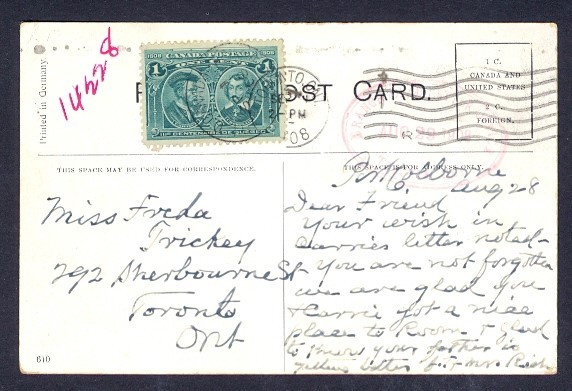 Printed in Germany
14228
1608 CANADA POSTAGE 1908
ONE CENT
1 1
IIIe CENTENAIRE DE QUEBEC
POST CARD.
TORONTO
PM
08
R
1 C.
CANADA AND
UNITED STATES
2 C.
FOREIGN.
THIS SPACE MAY BE USED FOR CORRESPONDENCE.
THIS SPACE IS FOR ADDRESS ONLY.
Miss Freda
Trickey
292 Sherbourne St
Toronto
Ont
Pt Colborne
Aug 28
Dear Friend
Your wish in
Carries letter noted-
You are not forgotten
we are glad you
& Carrie got a nice
place to Room & glad
to know your father is
getting better
Mr. Rich
610